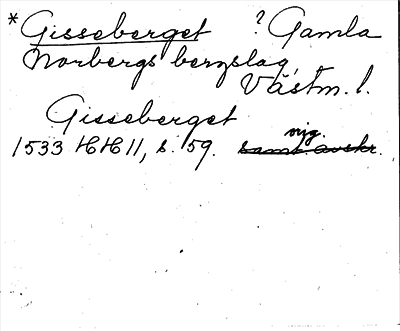 * Gisseberget ? Gamla
Norbergs bergslag,
Västm. l.
Gisseberget
orig.
1533 HH 11, s. 59. samt. avskr.